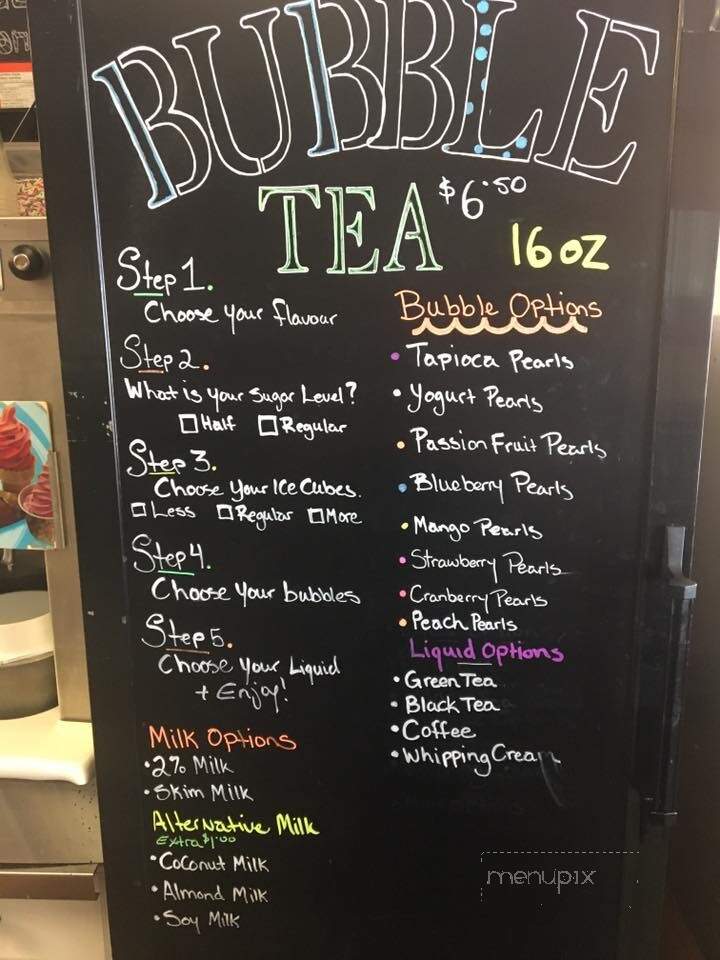 BUBBLE
TEA $6.50
16 oz
Step 1.
Choose your flavour
Step 2.
What is your Sugar Level?
Half Regular
Step 3.
Choose Your Ice Cubes.
Less Regular More
Step 4.
Choose Your bubbles
Step 5.
Choose Your Liquid
+ Enjoy!
Milk Options
•2% Milk
•Skim Milk
Alternative Milk
Extra $1.00
•Coconut Milk
•Almond Milk
•Soy Milk
Bubble Options
•Tapioca Pearls
•Yogurt Pearls
•Passion Fruit Pearls
•Blueberry Pearls
•Mango Pearls
•Strawberry Pearls
•Cranberry Pearls
•Peach Pearls
Liquid Options
•Green Tea
•Black Tea
•Coffee
•Whipping Cream
menupix